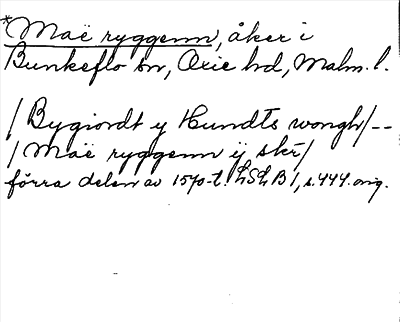 *Maë ryggenn, åker i
Bunkeflo sn, Oxie hd, Malm. l.
/ Bygiordt y Hundts wongh/--
/ Maë ryggenn ÿ skr/
förra delen av 1570-t. LSLB 1, s. 444. orig.